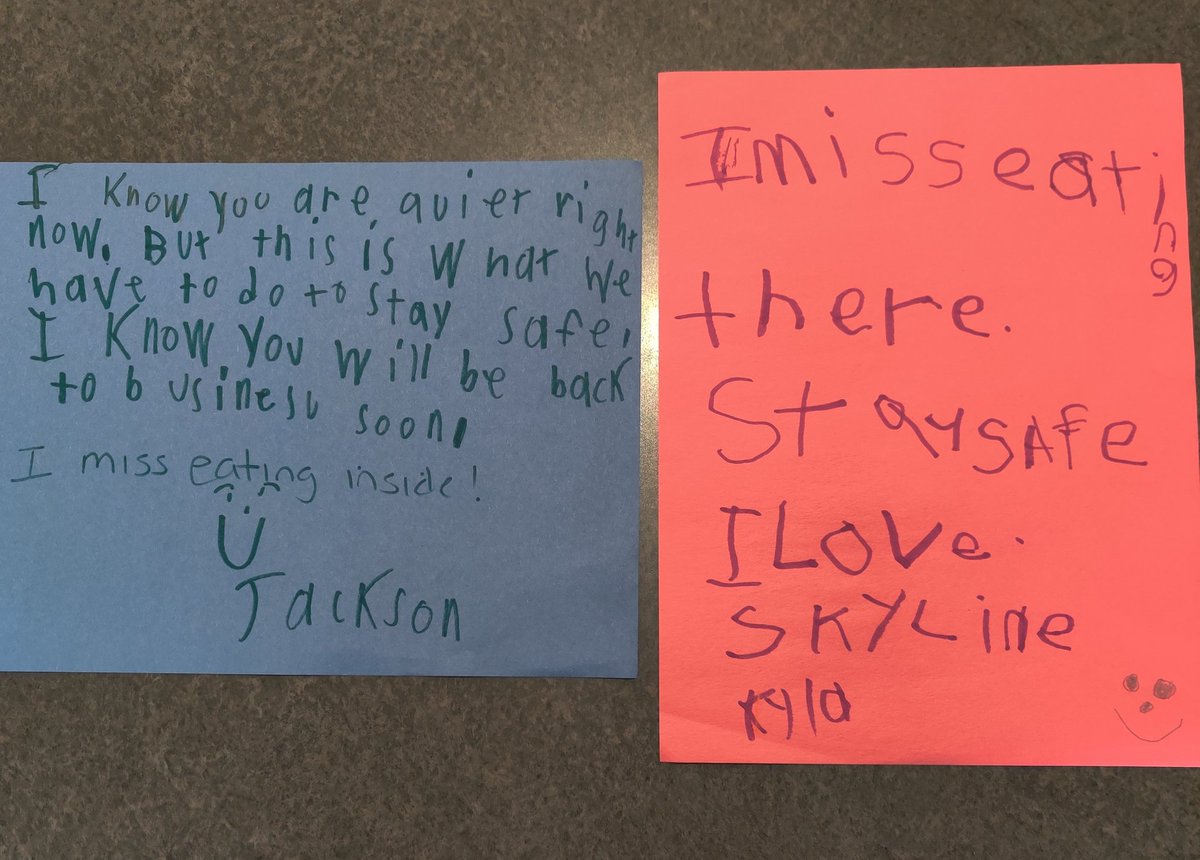 I know you are quier right
now. But this is what we
have to do to stay safe,
I know you will be back
to busines soon,
I miss eating inside!
Jackson
I miss eating
there.
Stay safe
I Love.
Skyline
Kyla